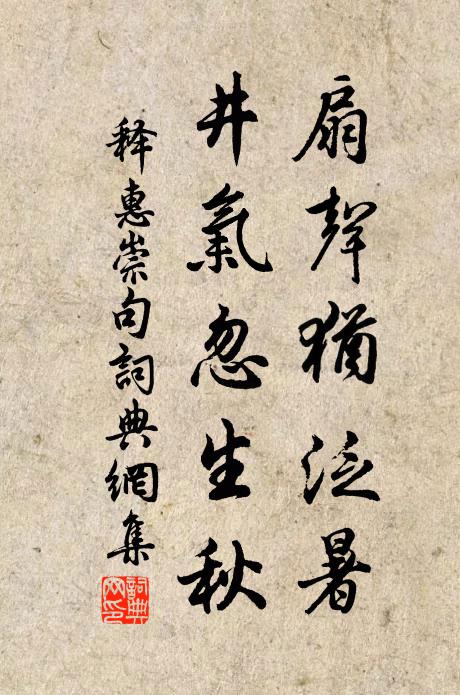 扇聲猶泛暑
井氣忽生秋
释惠崇句詞典網集
詞典網印